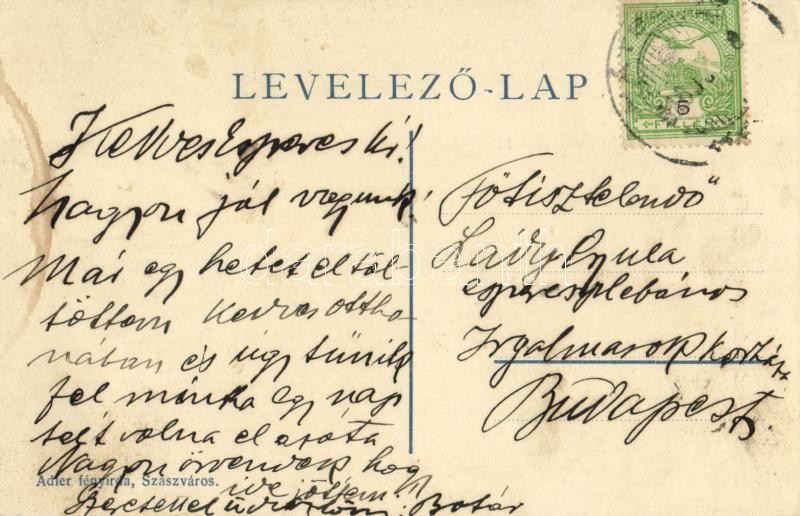 MAGYAR KIR. POSTA
5
FILLÉR
LEVELEZŐ-LAP
Kedves Esperes úr!
Nagyon jól vagyunk!
Már egy hetet eltöl-
töttem kedves ottho
nában és úgy tűnik
fel mintha egy nap
telt volna el azóta
Nagyon örvendek hogy
ide jöttem!
üdvözlöm: Botár
"Főtisztelendő"
Gyula
esperesplebános
Irgalmasok Kórháza
Budapest.
Adler fényirda, Szászváros.
darabanth